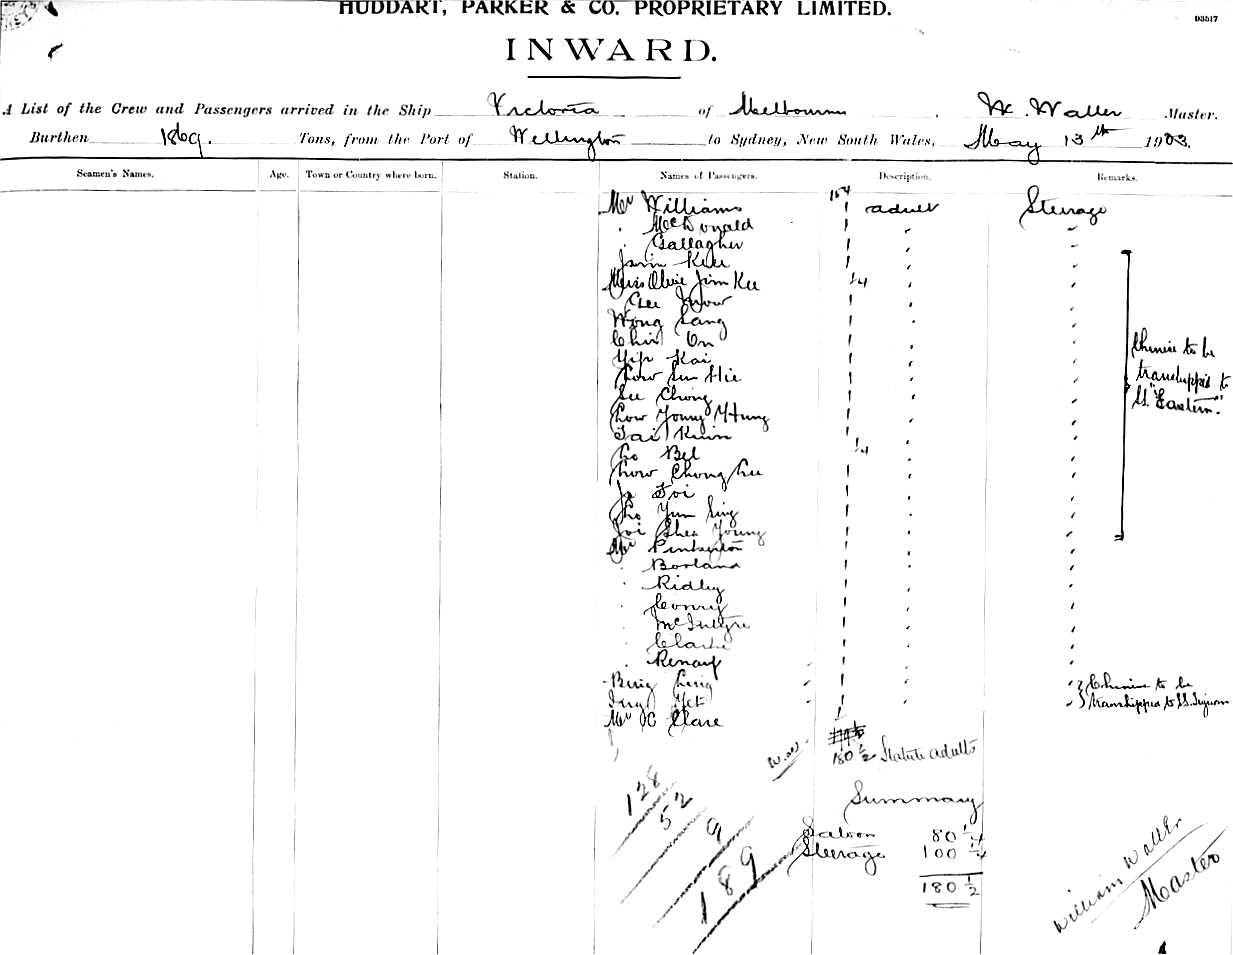 HUDDART, PARKER & CO. PROPRIETARY LIMITED.
03517
INWARD.
A List of the Crew and Passengers arrived in the Ship Victoria of Melbourne, W. Waller Master.
Burthen 1869. Tons, from the Port of Wellington to Sydney, New South Wales, May 13th 1903.
Seamen's Names. Age. Town or Country where born. Station. Names of Passengers. Description. Remarks.
154
Mr Williams 1 adult Steerage
" McDonald 1 " "
" Gallagher 1 " "
Kee 1 " "
Miss Olive Jim Kee 1/4 " "
Gee 1 " "
Wong Sang 1 " "
Chin On 1 " "
Yip Kai 1 " "
Chow Sun Hie 1 " "
See Chong 1 " "
Chow Young Hung 1 " "
Tai Kwin 1 " "
Ho Bel 1/4 " "
Chow Chong 1 " "
Toi 1 " "
Yum Sing 1 " "
Shea Young 1 " "
Chinese to be
transhipped to
SS. "Eastern."
Mr Pinkerton 1 " "
" Borland 1 " "
" Ridley 1 " "
" Conry 1 " "
" McIntyre 1 " "
" Clarke 1 " "
" Renauf 1 " "
Bing 1 " " Chinese to be
Yet 1 " " transhipped to SS.
Mr C Clare 1
180 1/2 Statute adults
128
52
9
189
Summary
Saloon 80 1/4
Steerage 100 1/4
180 1/2
William Waller
Master